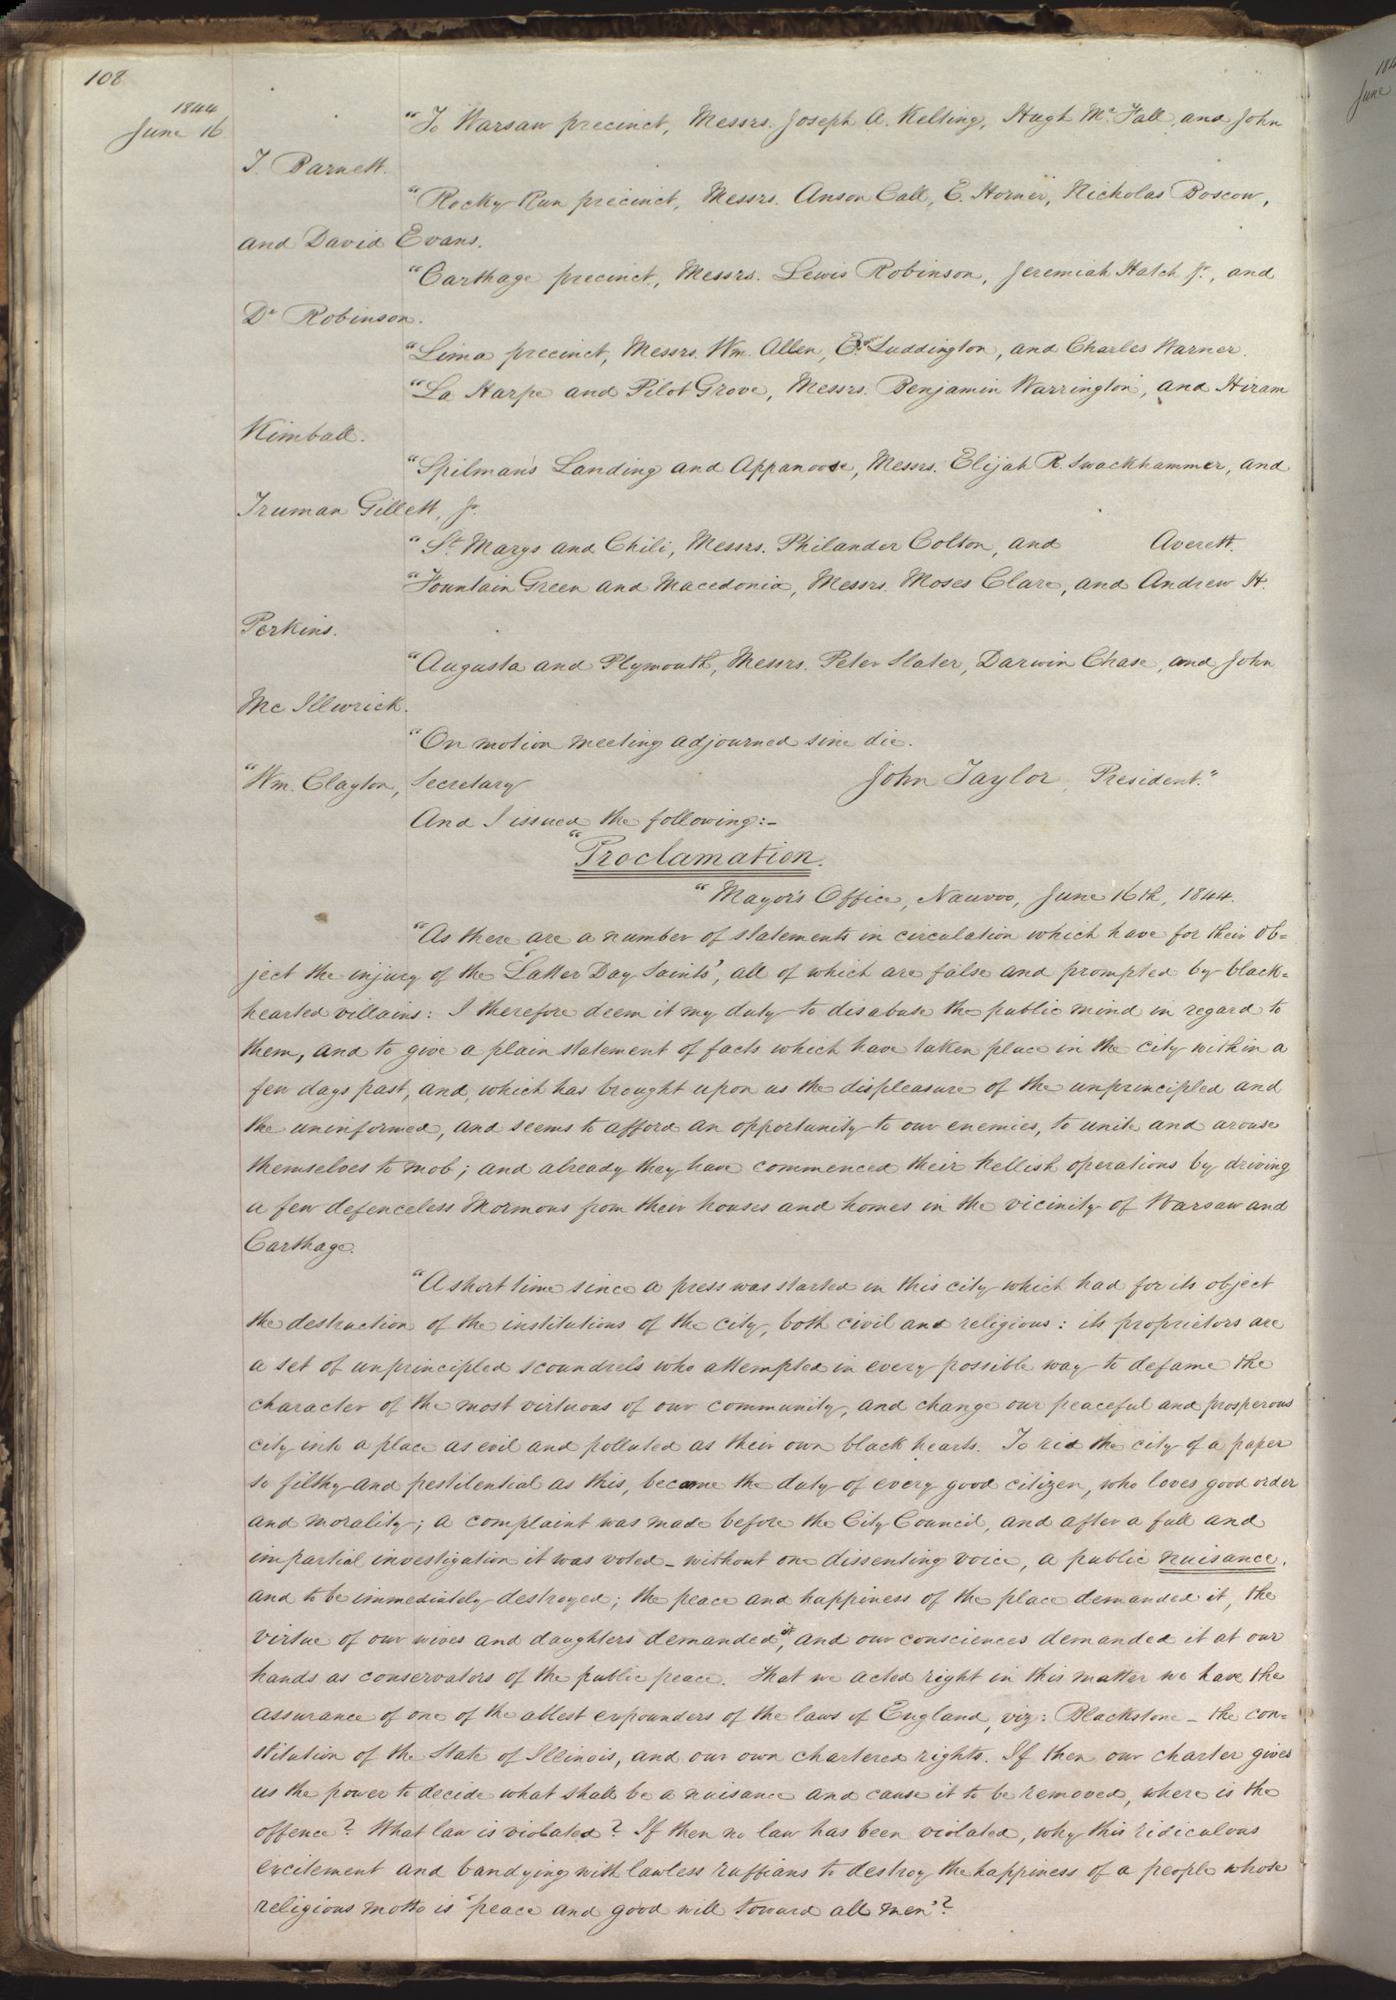 108
1844
June 16
"To Warsaw precinct, Messrs. Joseph A. Kelting, Hugh Mc. Fall, and John
T. Barnett.
"Rocky Run precinct, Messrs. Anson Call, E. Horner, Nicholas Boscow,
and David Evans.
"Carthage precinct, Messrs. Lewis Robinson, Jeremiah Hatch Jr., and
Dr Robinson.
"Lima precinct, Messrs. Wm. Allen, E. Luddington, and Charles Warner.
"La Harpe and Pilot Grove, Messrs. Benjamin Warrington, and Hiram
Kimball.
"Spilman's Landing and Appanoose, Messrs. Elijah R. Swackhammer, and
Truman Gillett, Jr.
"St Marys and Chili, Messrs. Philander Colton, and Averett.
"Fountain Green and Macedonia, Messrs. Moses Clare, and Andrew H.
Perkins.
"Augusta and Plymouth, Messrs. Peter Slater, Darwin Chase, and John
Mc Illwrick.
"On motion meeting adjourned sine die.
"Wm. Clayton, Secretary John Taylor, President."
And I issued the following:-
"Proclamation.
"Mayor's Office, Nauvoo, June 16th, 1844.
"As there are a number of statements in circulation which have for their ob=
ject the injury of the 'Latter Day Saints', all of which are false and prompted by black=
hearted villains: I therefore deem it my duty to disabuse the public mind in regard to
them, and to give a plain statement of facts which have taken place in the city within a
few days past, and, which has brought upon us the displeasure of the unprincipled and
the uninformed, and seems to afford an opportunity to our enemies, to unite and arouse
themselves to mob; and already they have commenced their hellish operations by driving
a few defenceless Mormons from their houses and homes in the vicinity of Warsaw and
Carthage.
"A short time since a press was started in this city which had for its object
the destruction of the institutions of the city, both civil and religious: its proprietors are
a set of unprincipled scoundrels who attempted in every possible way to defame the
character of the most virtuous of our community, and change our peaceful and prosperous
city into a place as evil and polluted as their own black hearts. To rid the city of a paper
so filthy and pestilential as this, became the duty of every good citizen, who loves good order
and morality; a complaint was made before the City Council, and after a full and
impartial investigation it was voted - without one dissenting voice, a public nuisance,
and to be immediately destroyed; the peace and happiness of the place demanded it, the
virtue of our wives and daughters demanded it, and our consciences demanded it at our
hands as conservators of the public peace. That we acted right in this matter we have the
assurance of one of the ablest expounders of the laws of England, viz: Blackstone - the con=
stitution of the State of Illinois, and our own chartered rights. If then our charter gives
us the power to decide what shall be a nuisance and cause it to be removed, where is the
offence? What law is violated? If then no law has been violated, why this ridiculous
excitement and bandying with lawless ruffians to destroy the happiness of a people whose
religious motto is 'peace and good will toward all men'?
184
June